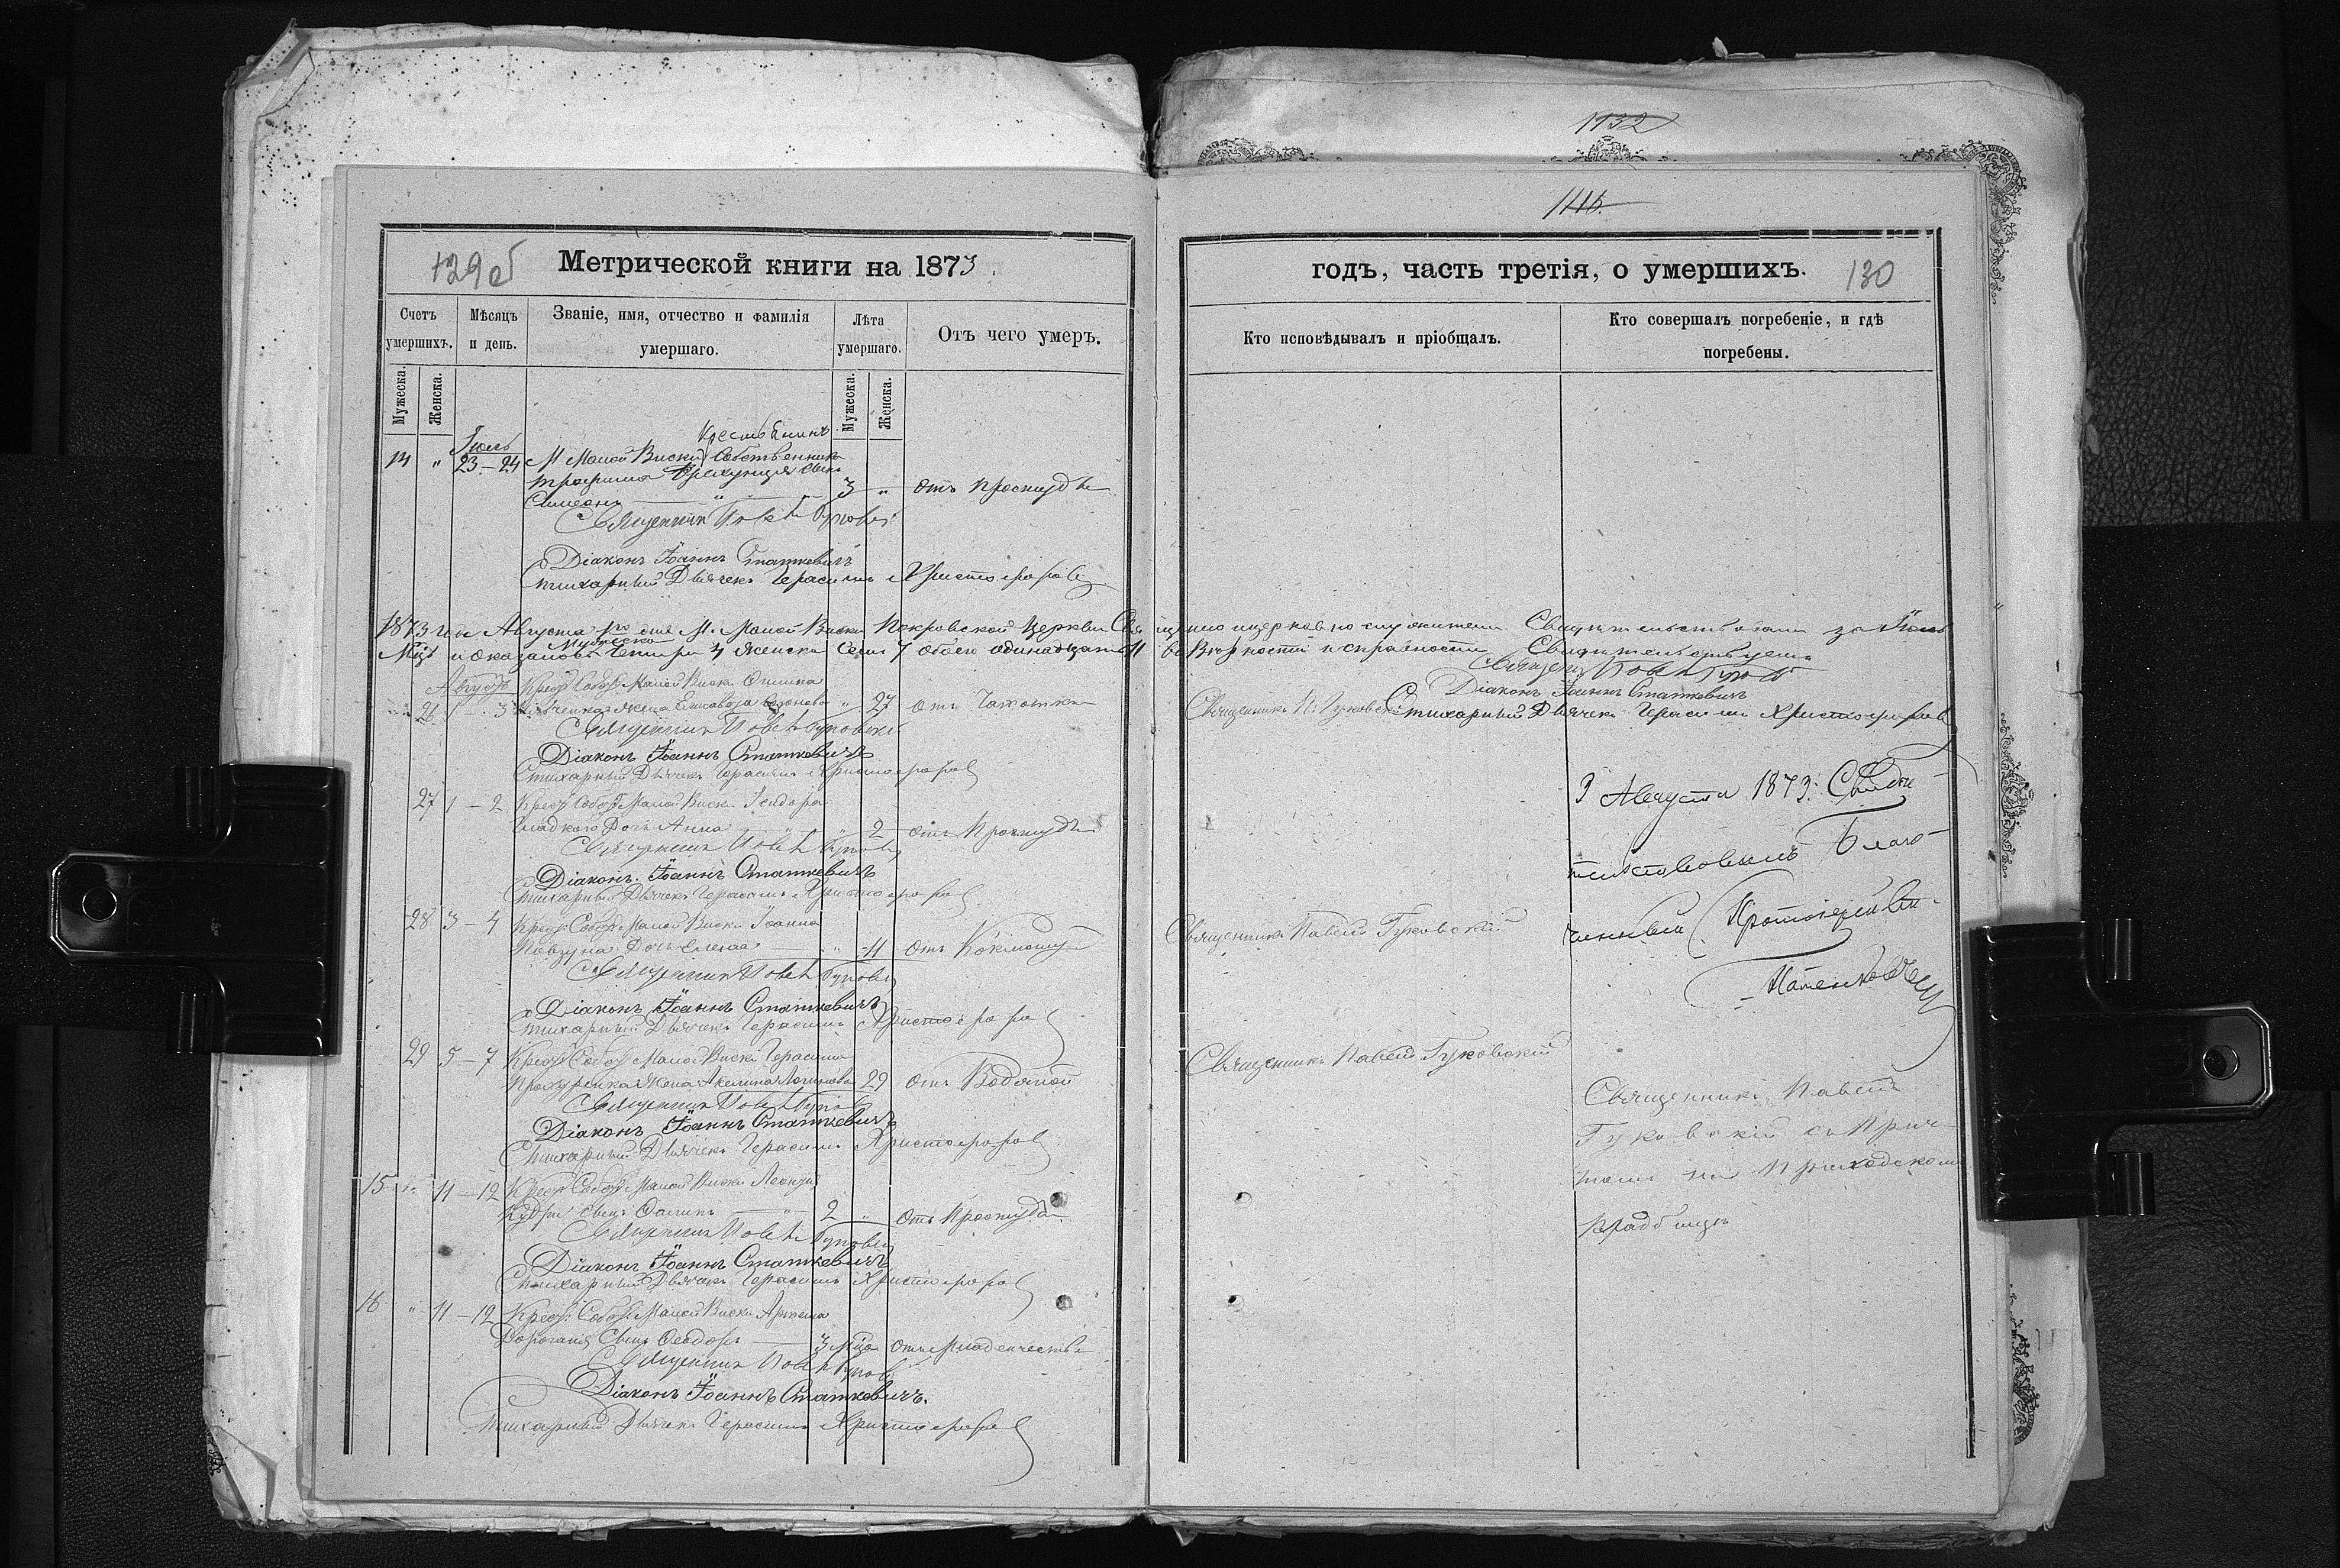 1132
1116.
129 об
Метрической книги на 1873.
годъ, часть третія, о умершихъ.
130
Счетъ умершихъ.
Мѣсяцъ и день.
Званіе, имя, отчество и фамилія умершаго.
Лѣта умершаго.
Отъ чего умеръ.
Кто исповѣдывалъ и пріобщалъ.
Кто совершалъ погребеніе, и гдѣ погребены.
Мужеска.
Женска.
Мужеска.
Женска.
Іюль
14 " 23-24 М. Малой Виски Собственника
Трофима сынъ
Симеонъ 3 " отъ простуды
Священникъ Павелъ Гуковскій
Діаконъ Іоаннъ Статкевичъ
Стихарный Дьячекъ Герасимъ Христофоровъ
1873 года Августа 1го дня М. Малой Виски Покровской Церкви Священно церковно служители Свидѣтельствовали за Іюль
Мѣс. и оказалось Мужеска Четыри 4 Женска Семь 7 обоего одинадцать 11 въ Вѣрности и справности Свидѣтельствуемъ
Священ. Павелъ Гуковскій
Діаконъ Іоаннъ Статкевичъ
Стихарный Дьячекъ Герасимъ Христофоровъ
Августъ Крест. Собст. Малой Виски
26 1-3 жена Елисавета " 27 отъ Чахотки Священникъ П. Гуковскій
Священникъ Павелъ Гуковскій
Діаконъ Іоаннъ Статкевичъ
Стихарный Дьячекъ Герасимъ Христофоровъ
27 1-2 Крест. Собст. Малой Виски Ісидора
Гладкого Дочь Анна " 2 отъ Простуды
Священникъ Павелъ Гуковскій
Діаконъ Іоаннъ Статкевичъ
Стихарный Дьячекъ Герасимъ Христофоровъ
28 3-4 Крест. Собст. Малой Виски Іоанна
Дочь Елена " 11 отъ Священникъ Павелъ Гуковскій
Священникъ Павелъ Гуковскій
Діаконъ Іоаннъ Статкевичъ
Стихарный Дьячекъ Герасимъ Христофоровъ
29 5-7 Крест. Собст. Малой Виски Герасима
Жена Акелина 29 отъ Водяной Священникъ Павелъ Гуковскій
Священникъ Павелъ Гуковскій
Діаконъ Іоаннъ Статкевичъ
Стихарный Дьячекъ Герасимъ Христофоровъ
15 " 11-12 Крест. Собст. Малой Виски
сынъ 2 " отъ Простуды
Священникъ Павелъ Гуковскій
Діаконъ Іоаннъ Статкевичъ
Стихарный Дьячекъ Герасимъ Христофоровъ
16 " 11-12 Крест. Собст. Малой Виски Артема
Сынъ Ѳеодоръ 3 мѣс. отъ Младенчества
Священникъ Павелъ Гуковскій
Діаконъ Іоаннъ Статкевичъ.
Стихарный Дьячекъ Герасимъ Христофоровъ
3 Августа 1873. Свидѣ-
тельствовалъ Благо-
чинный Протоіерей
Священникъ Павелъ
Гуковскій съ Прич-
томъ на Приходскомъ
кладбищѣ